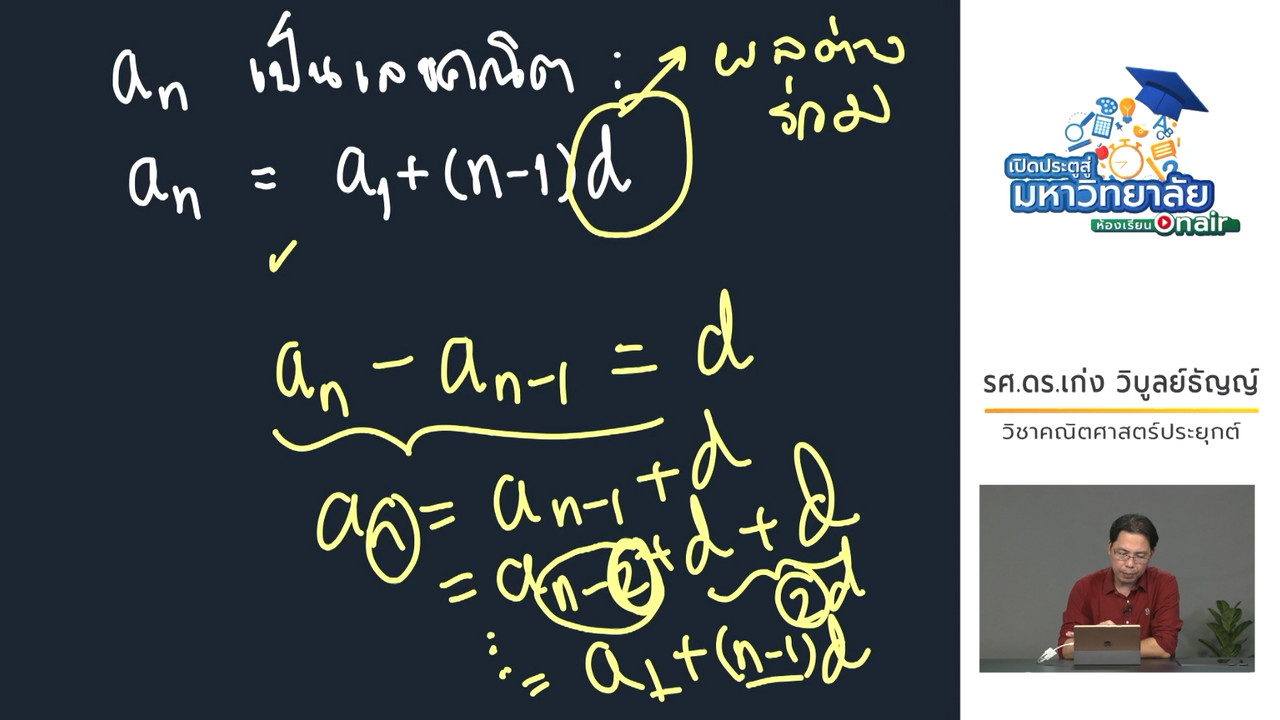 aₙ เป็นเลขคณิต :
ผลต่าง
ร่วม
aₙ = a₁+(n-1)d
✓
aₙ - aₙ₋₁ = d
aₙ = aₙ₋₁ + d
= aₙ₋₂ + d + d
2d
⋮ = a₁ + (n-1)d
เปิดประตูสู่
มหาวิทยาลัย
ห้องเรียน Onair
รศ.ดร.เก่ง วิบูลย์ธัญญ์
วิชาคณิตศาสตร์ประยุกต์